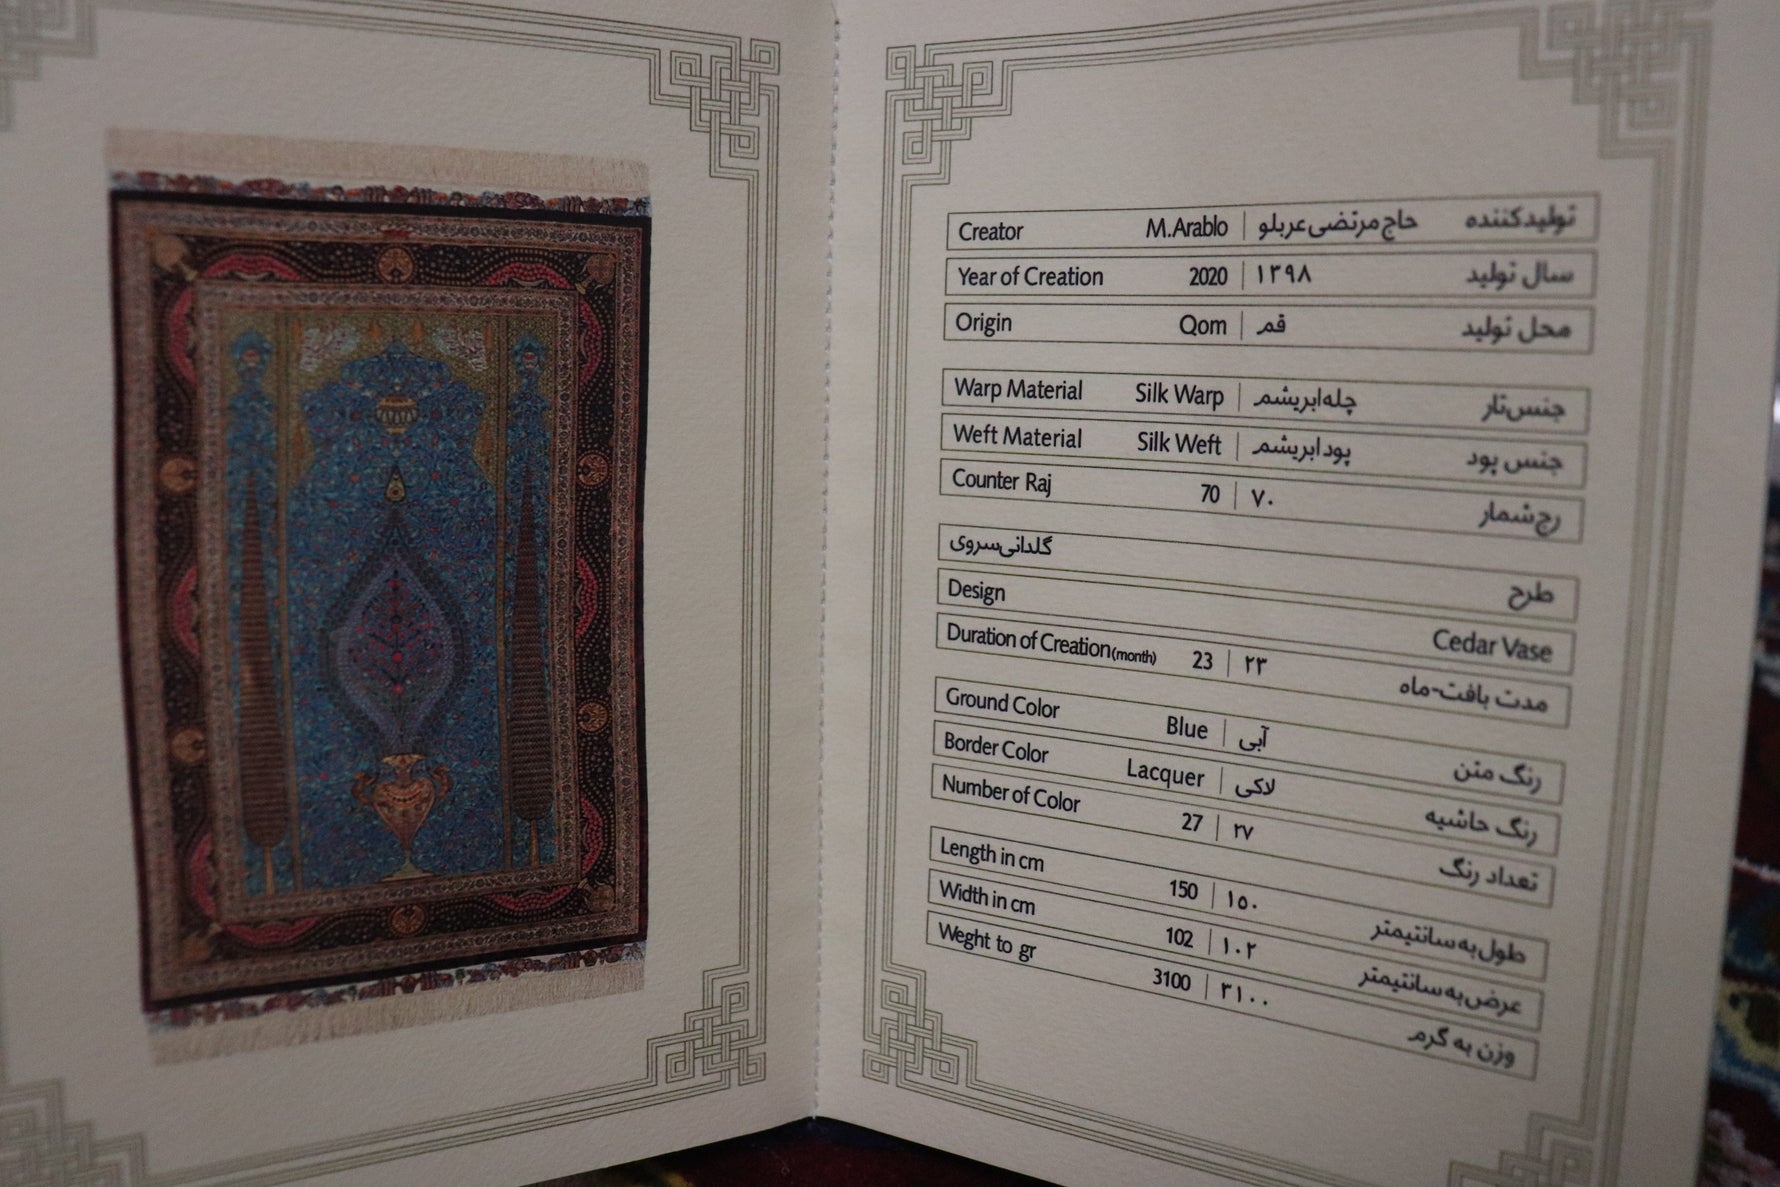 Creator M.Arablo | حاج مرتضی عربلو تولیدکننده
Year of Creation 2020 | ۱۳۹۸ سال تولید
Origin Qom | قم محل تولید
Warp Material Silk Warp | چله ابریشم جنس تار
Weft Material Silk Weft | پود ابریشم جنس پود
Counter Raj 70 | ۷۰ رج شمار
گلدانی سروی طرح
Design Cedar Vase
Duration of Creation(month) 23 | ۲۳ مدت بافت-ماه
Ground Color Blue | آبی رنگ متن
Border Color Lacquer | لاکی رنگ حاشیه
Number of Color 27 | ۲۷ تعداد رنگ
Length in cm 150 | ۱۵۰ طول به سانتیمتر
Width in cm 102 | ۱۰۲ عرض به سانتیمتر
Weght to gr 3100 | ۳۱۰۰ وزن به گرم